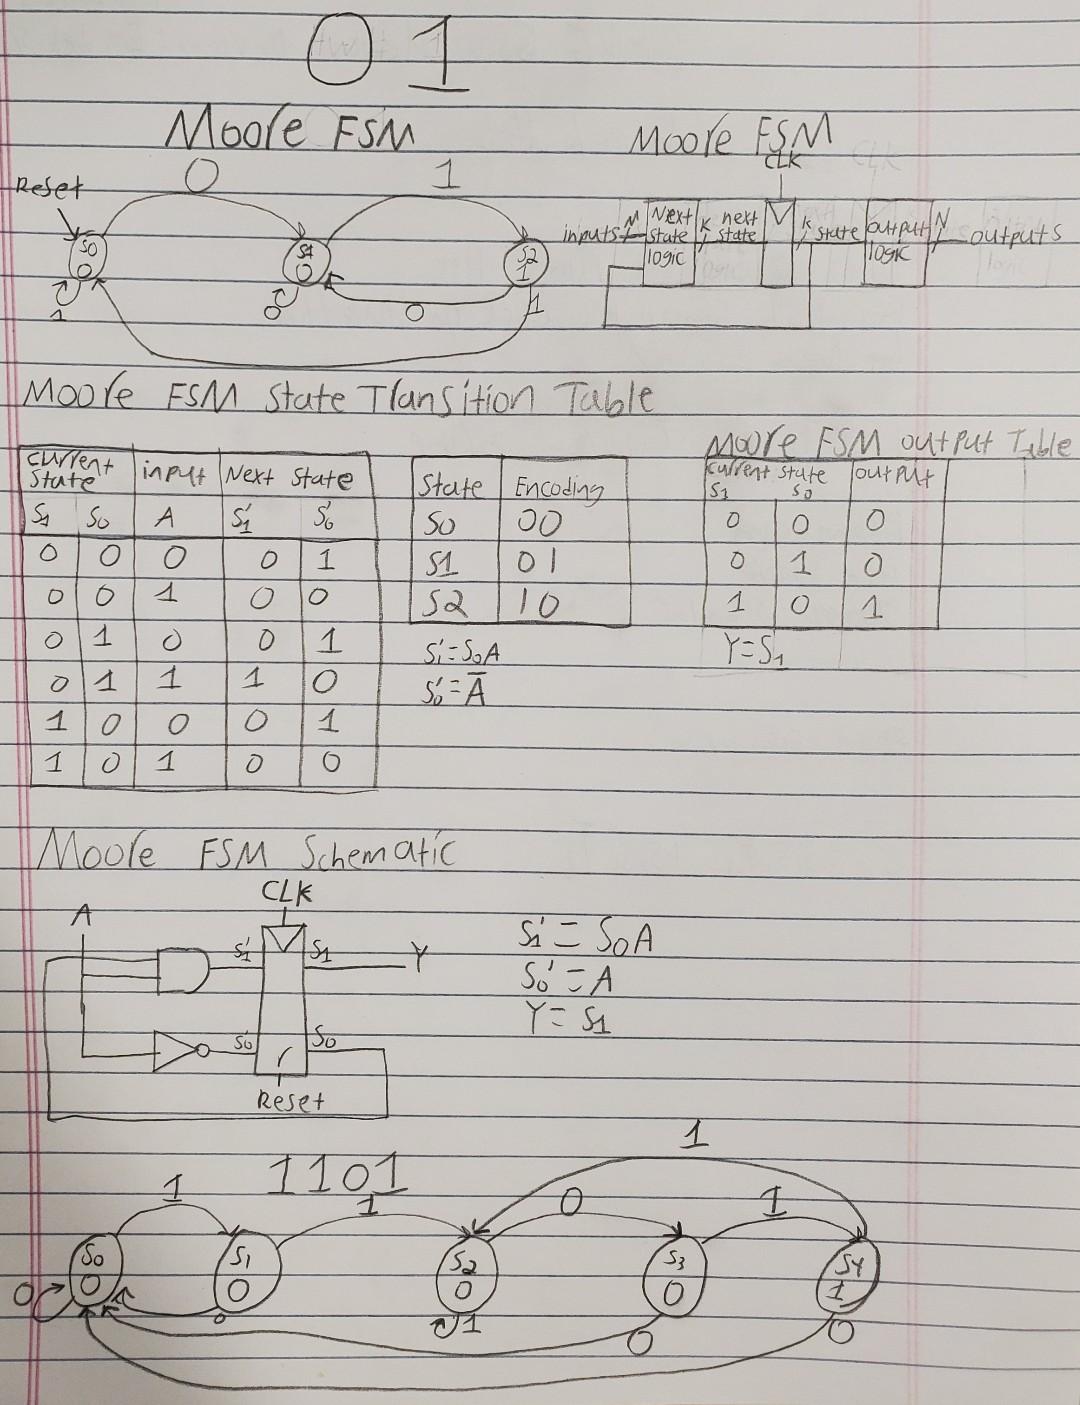 01
Moore FSM
Moore FSM
CLK
Reset
0
1
S0
0
S1
0
S2
1
1
0
0
1
inputs M Next state logic K next state K state output logic N outputs
Moore FSM State Transition Table
Current State input Next State
S1 S0 A S1' S0'
0 0 0 0 1
0 0 1 0 0
0 1 0 0 1
0 1 1 1 0
1 0 0 0 1
1 0 1 0 0
State Encoding
S0 00
S1 01
S2 10
S1'=S0A
S0'=A̅
Moore FSM output Table
current state output
S1 S0
0 0 0
0 1 0
1 0 1
Y=S1
Moore FSM Schematic
CLK
A
S1' S1 Y
S0' S0
r
Reset
S1' = S0A
S0' = A
Y = S1
1101
1
1
0
1
1
S0
0
S1
0
S2
0
S3
0
S4
1
0
0
1
0
0